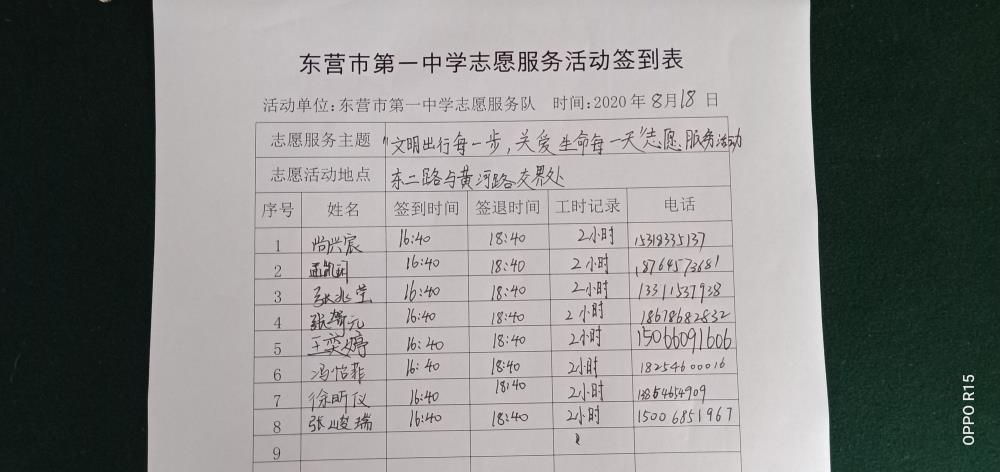 东营市第一中学志愿服务活动签到表
活动单位:东营市第一中学志愿服务队 时间:2020 年 8月18 日
志愿服务主题 “文明出行每一步,关爱生命每一天”志愿服务活动
志愿活动地点 东二路与黄河路交界处
序号 姓名 签到时间 签退时间 工时记录 电话
1 尚兴宸 16:40 18:40 2小时 15318335137
2 16:40 18:40 2小时 18764573681
3 张兆莹 16:40 18:40 2小时 13311537938
4 16:40 18:40 2小时 18678682832
5 王奕婷 16:40 18:40 2小时 15066091606
6 冯怡菲 16:40 18:40 2小时 18254600016
7 徐昕仪 16:40 18:40 2小时 13854654909
8 张峻瑞 16:40 18:40 2小时 15006851967
9
OPPO R15